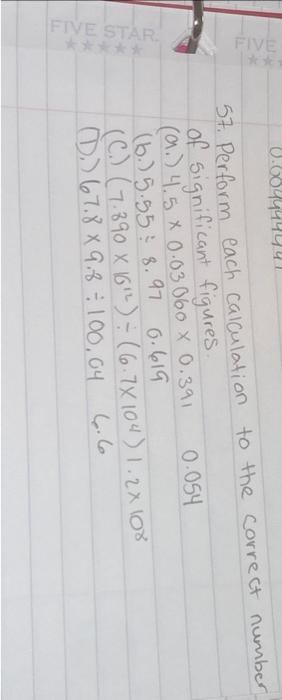 0.004444441
57. Perform each calculation to the correct number
of significant figures.
(a.) 4.5 × 0.03060 × 0.391 0.054
(b.) 5.55 ÷ 8.97 0.619
(C.) (7.890 × 10¹²) ÷ (6.7×10⁴) 1.2×10⁸
(D.) 67.8 × 9.8 ÷ 100.04 6.6
FIVE STAR.
FIVE